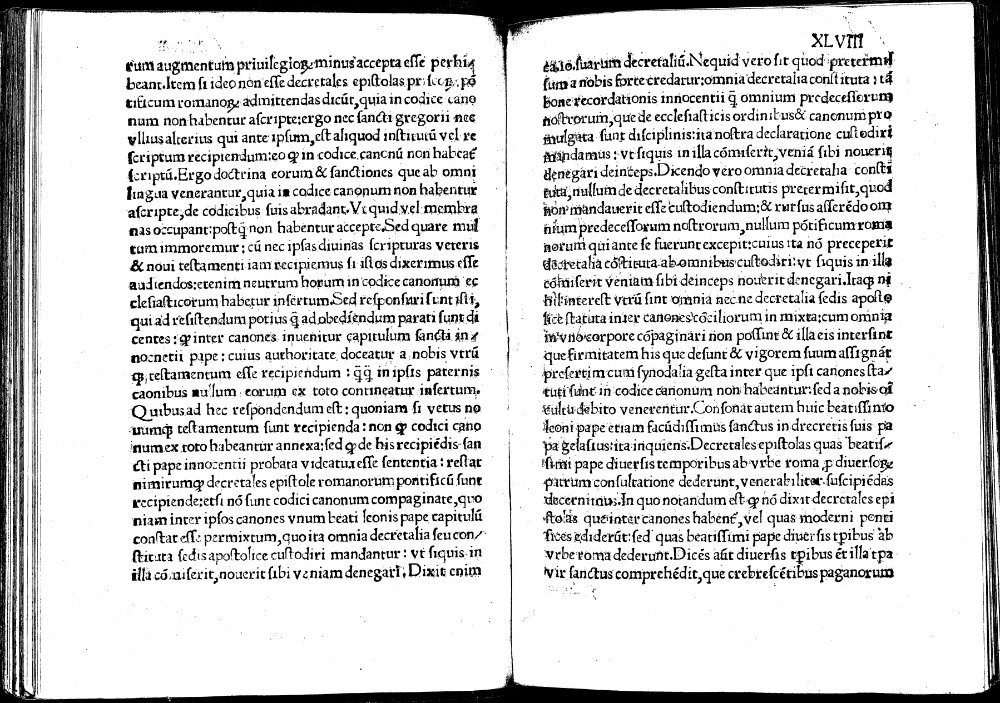 rum augmentum priuilegioꝝ minus accepta esse perhi
beant. Item si ideo non esse decretales epistolas priscoꝝ, pō
tificum romanoꝝ admittendas dicūt, quia in codice cano
num non habentur ascripte: ergo nec sancti gregorii nec
vllius alterius qui ante ipsum, est aliquod institutū vel re
scriptum recipiendum: eo ꝙ in codice canonū non habeat᷑
scriptū. Ergo doctrina eorum & sanctiones que ab omni
lingua venerantur, quia in codice canonum non habentur
ascripte, de codicibus suis abradant. Vt quid vel membra
nas occupant: postq̄ non habentur accepte. Sed quare mul
tum immoremur: cū nec ipsas diuinas scripturas veteris
& noui testamenti iam recipiemus si istos dixerimus esse
audiendos: etenim neutrum horum in codice canonum ec
clesiasticorum habetur insertum. Sed responsuri sunt isti,
qui ad resistendum potius q̄ ad obediendum parati sunt di
centes: ꝙ inter canones inuenitur capitulum sancti in/
nocnetii pape: cuius authoritate doceatur a nobis vtrū
ꝙ testamentum esse recipiendum: q̄q̄ in ipsis paternis
caonibus nullum eorum ex toto contineatur insertum.
Quibus ad hec respondendum est: quoniam si vetus no
uumꝙ testamentum sunt recipienda: non ꝙ codici cano
num ex toto habeantur annexa: sed ꝙ de his recipiēdis san
cti pape innocentii probata videatur esse sententia: restat
nimirumꝙ decretales epistole romanorum pontificū sunt
recipiende: etsi nō sunt codici canonum compaginate, quo
niam inter ipsos canones vnum beati leonis pape capitulū
constat esse permixtum, quo ita omnia decretalia seu con/
stituta sedis apostolice custodiri mandantur: vt siquis in
illa cōmiserit, nouerit sibi veniam denegari. Dixit enim
XLVIII
suarum decretaliū. Nequid vero sit quod pretermis
sum a nobis forte credatur: omnia decretalia constituta: tā
bone recordationis innocentii q̄ omnium predecessorum
nostrorum, que de ecclesiasticis ordinibus & canonum pro
mulgata sunt disciplinis: ita nostra declaratione custodiri
mandamus: vt siquis in illa cōmiserit, veniā sibi nouerit
denegari deinceps. Dicendo vero omnia decretalia consti
tuta, nullum de decretalibus constitutis pretermisit, quod
non mandauerit esse custodiendum: & rursus asserēdo om
nium predecessorum nostrorum, nullum pōtificum roma
norum qui ante se fuerunt excepit: cuius ita nō preceperit
decretalia cōstituta ab omnibus custodiri: vt siquis in illa
cōmiserit veniam sibi deinceps nouerit denegari. Itaqꝫ ni
hil interest vtrū sint omnia necne decretalia sedis aposto
lice statuta inter canones cōciliorum in mixta: cum omnia
in vno corpore cōpaginari non possint & illa eis intersint
que firmitatem his que desunt & vigorem suum assignāt
presertim cum synodalia gesta inter que ipsi canones sta/
tuti sunt in codice canonum non habeantur: sed a nobis
cultu debito venerentur. Consonat autem huic beatissimo
leoni pape etiam facūdissimus sanctus in drecretis suis pa
pa gelasius: ita inquiens. Decretales epistolas quas beatis/
simi pape diuersis temporibus ab vrbe roma ꝓ diuersoꝝ
patrum consultatione dederunt, venerabiliter suscipiēdas
decernimus. In quo notandum est ꝙ nō dixit decretales epi
stolas que inter canones habent᷑, vel quas moderni ponti
fices ediderūt: sed quas beatissimi pape diuersis tꝑibus ab
vrbe roma dederunt. Dicēs aūt diuersis tꝑibus ēt illa tꝑa
vir sanctus comprehēdit, que crebrescētibus paganorum